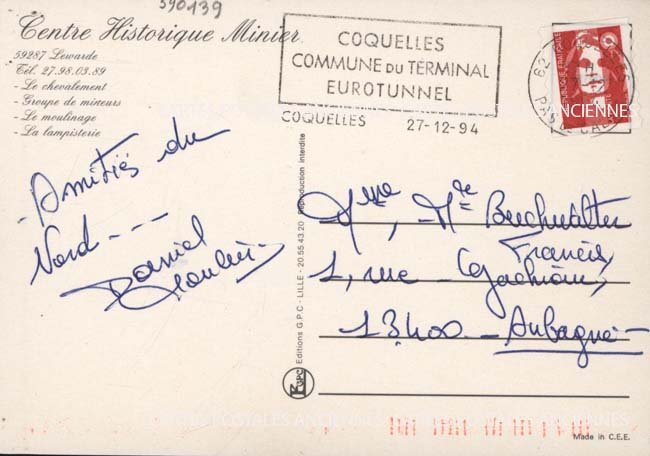 590139
Centre Historique Minier
59287 Lewarde
Tél. 27.98.03.89
- Le chevalement
- Groupe de mineurs
- Le moulinage
- La lampisterie
COQUELLES
COMMUNE DU TERMINAL
EUROTUNNEL
COQUELLES 27-12-94
62
PAS DE CALAIS
REPUBLIQUE FRANÇAISE
- Amitiés du
Nord - - -
Daniel
Editions G.P.C - LILLE - 20.55.43.20 Reproduction interdite
Mme, Mr Buchwalter
Francis,
1, rue
13400 - Aubagne -
GPC
Made in C.E.E.
CARTES POSTALES ANCIENNES